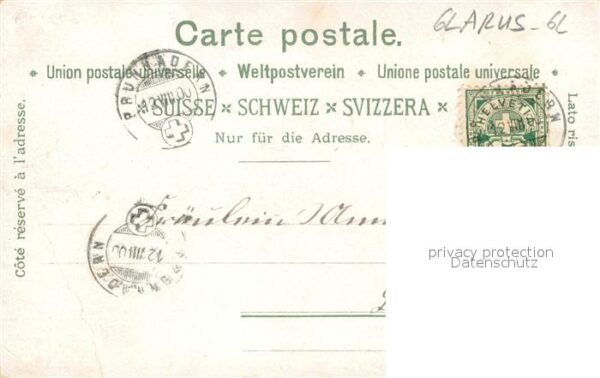 GLARUS - GL
Carte postale.
Union postale universelle Weltpostverein Unione postale universale
SUISSE × SCHWEIZ × SVIZZERA ×
Nur für die Adresse.
Côté réservé à l'adresse.
Lato ris
BRUNNADERN
HELVETIA
Fräulein Ann
BRUNNADERN
privacy protection
Datenschutz